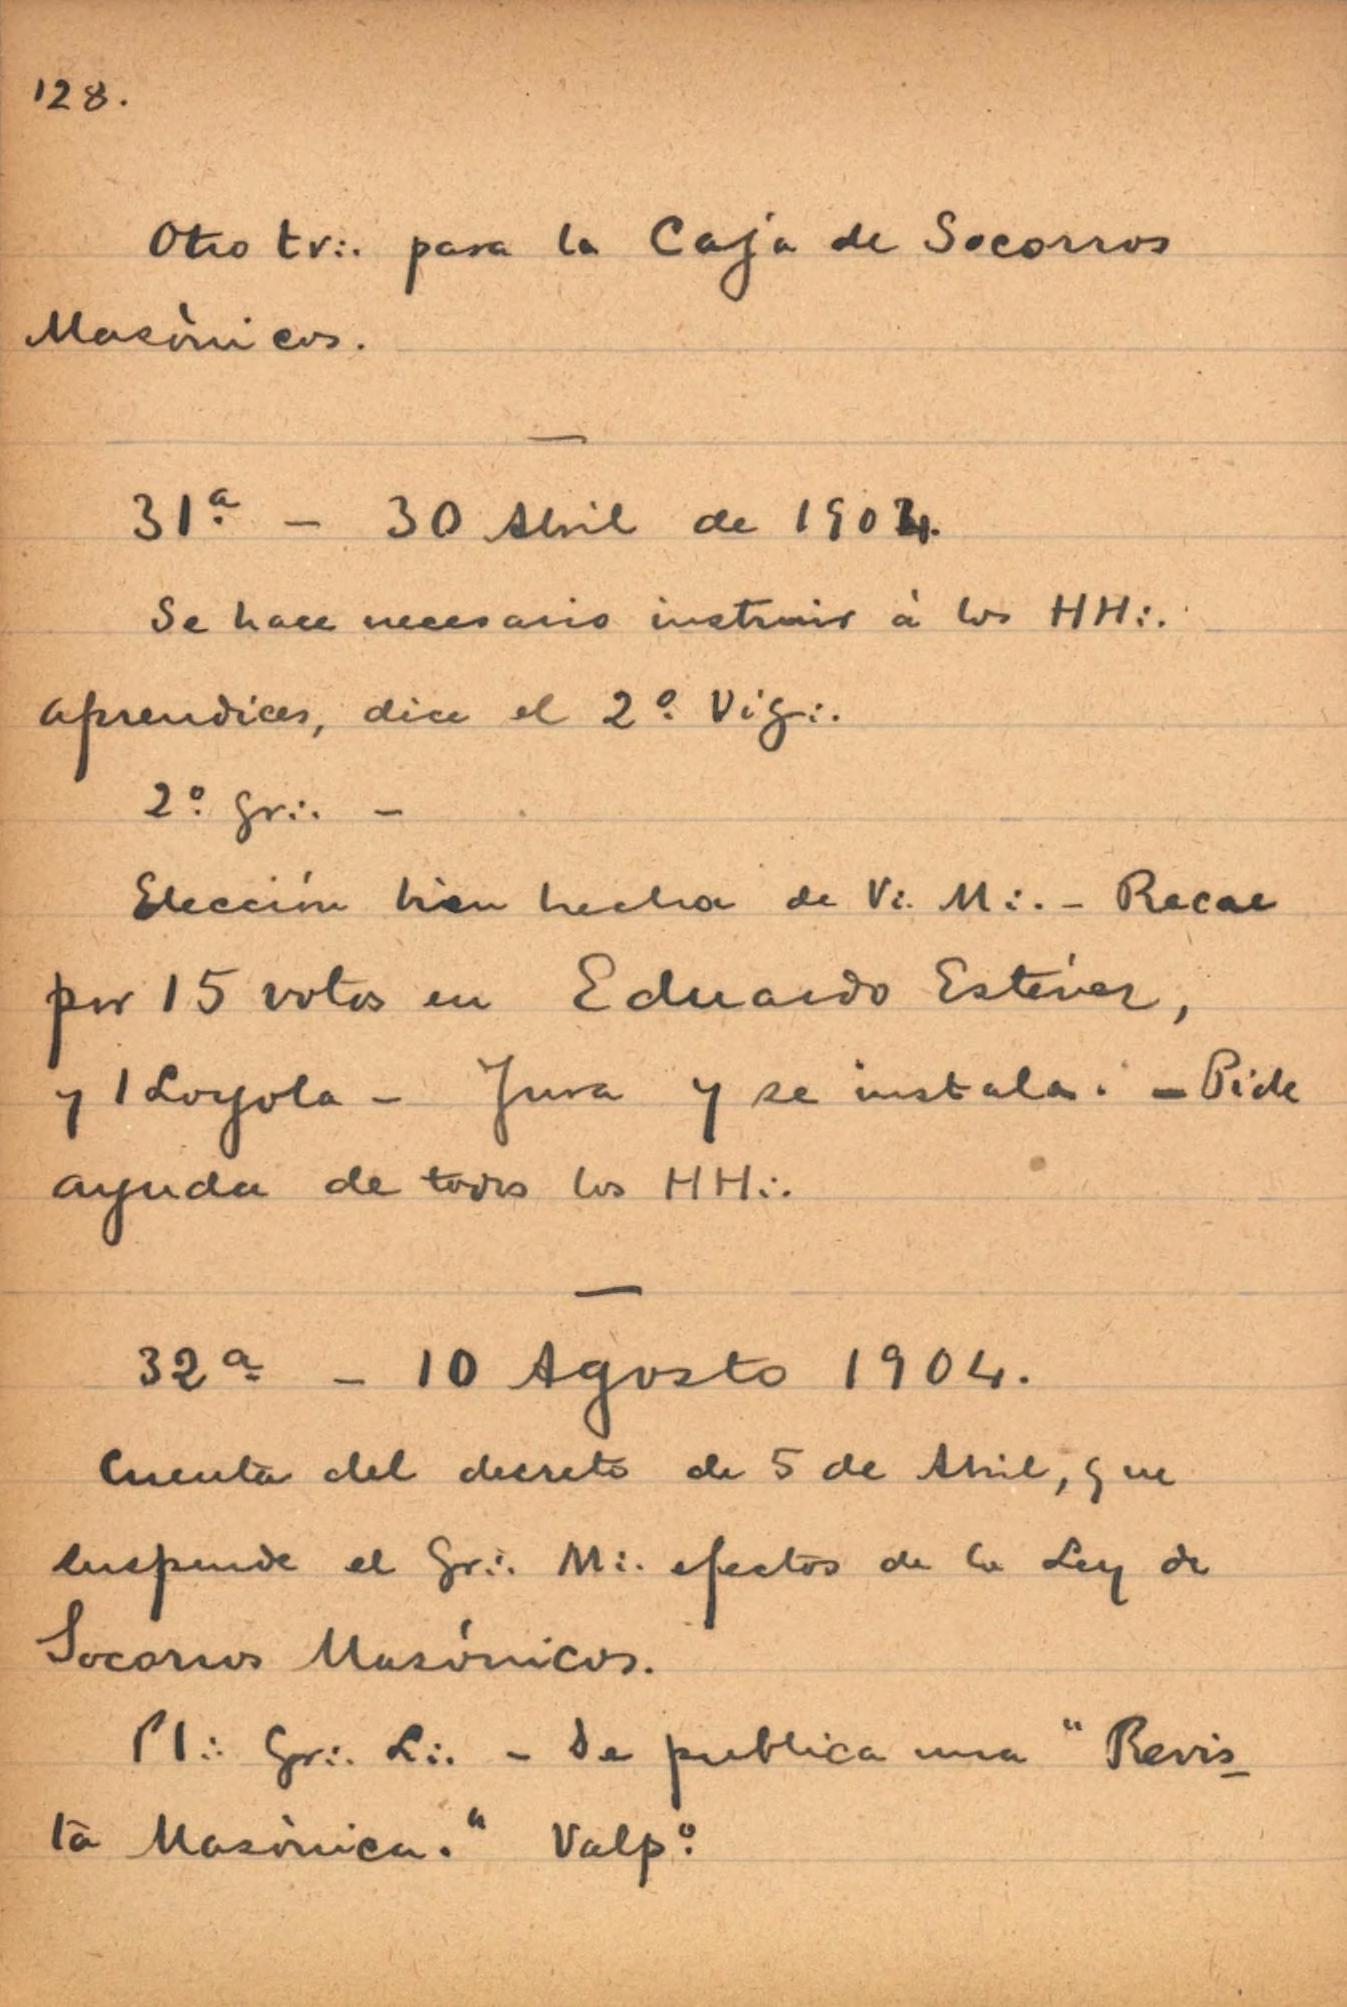 128.
Otro tr∴ para la Caja de Socorros
Masónicos.
31ª - 30 Abril de 1904.
Se hace necesario instruir á los HH∴
aprendices, dice el 2º Vig∴
2º Gr∴ -
Elección bien hecha de V∴ M∴ - Recae
por 15 votos en Eduardo Estévez,
y 1 Loyola - Jura y se instala. - Pide
ayuda de todos los HH∴
32ª - 10 Agosto 1904.
Cuenta del decreto de 5 de Abril, que
suspende el Gr∴ M∴ efectos de la Ley de
Socorros Masónicos.
Pl∴ Gr∴ L∴ - Se publica una "Revis-
ta Masónica." Valpº